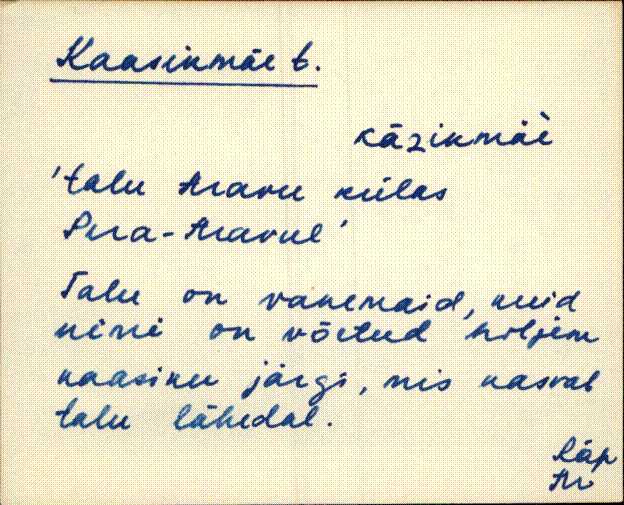 Kaasikmäe t.
kāzikmäè
'talu Aravu külas
Pera-Aravul'
Talu on vanemaid, kuid
nimi on võetud hiljem
kaasiku järgi, mis kasvab
talu lähedal.
Räp
Ar